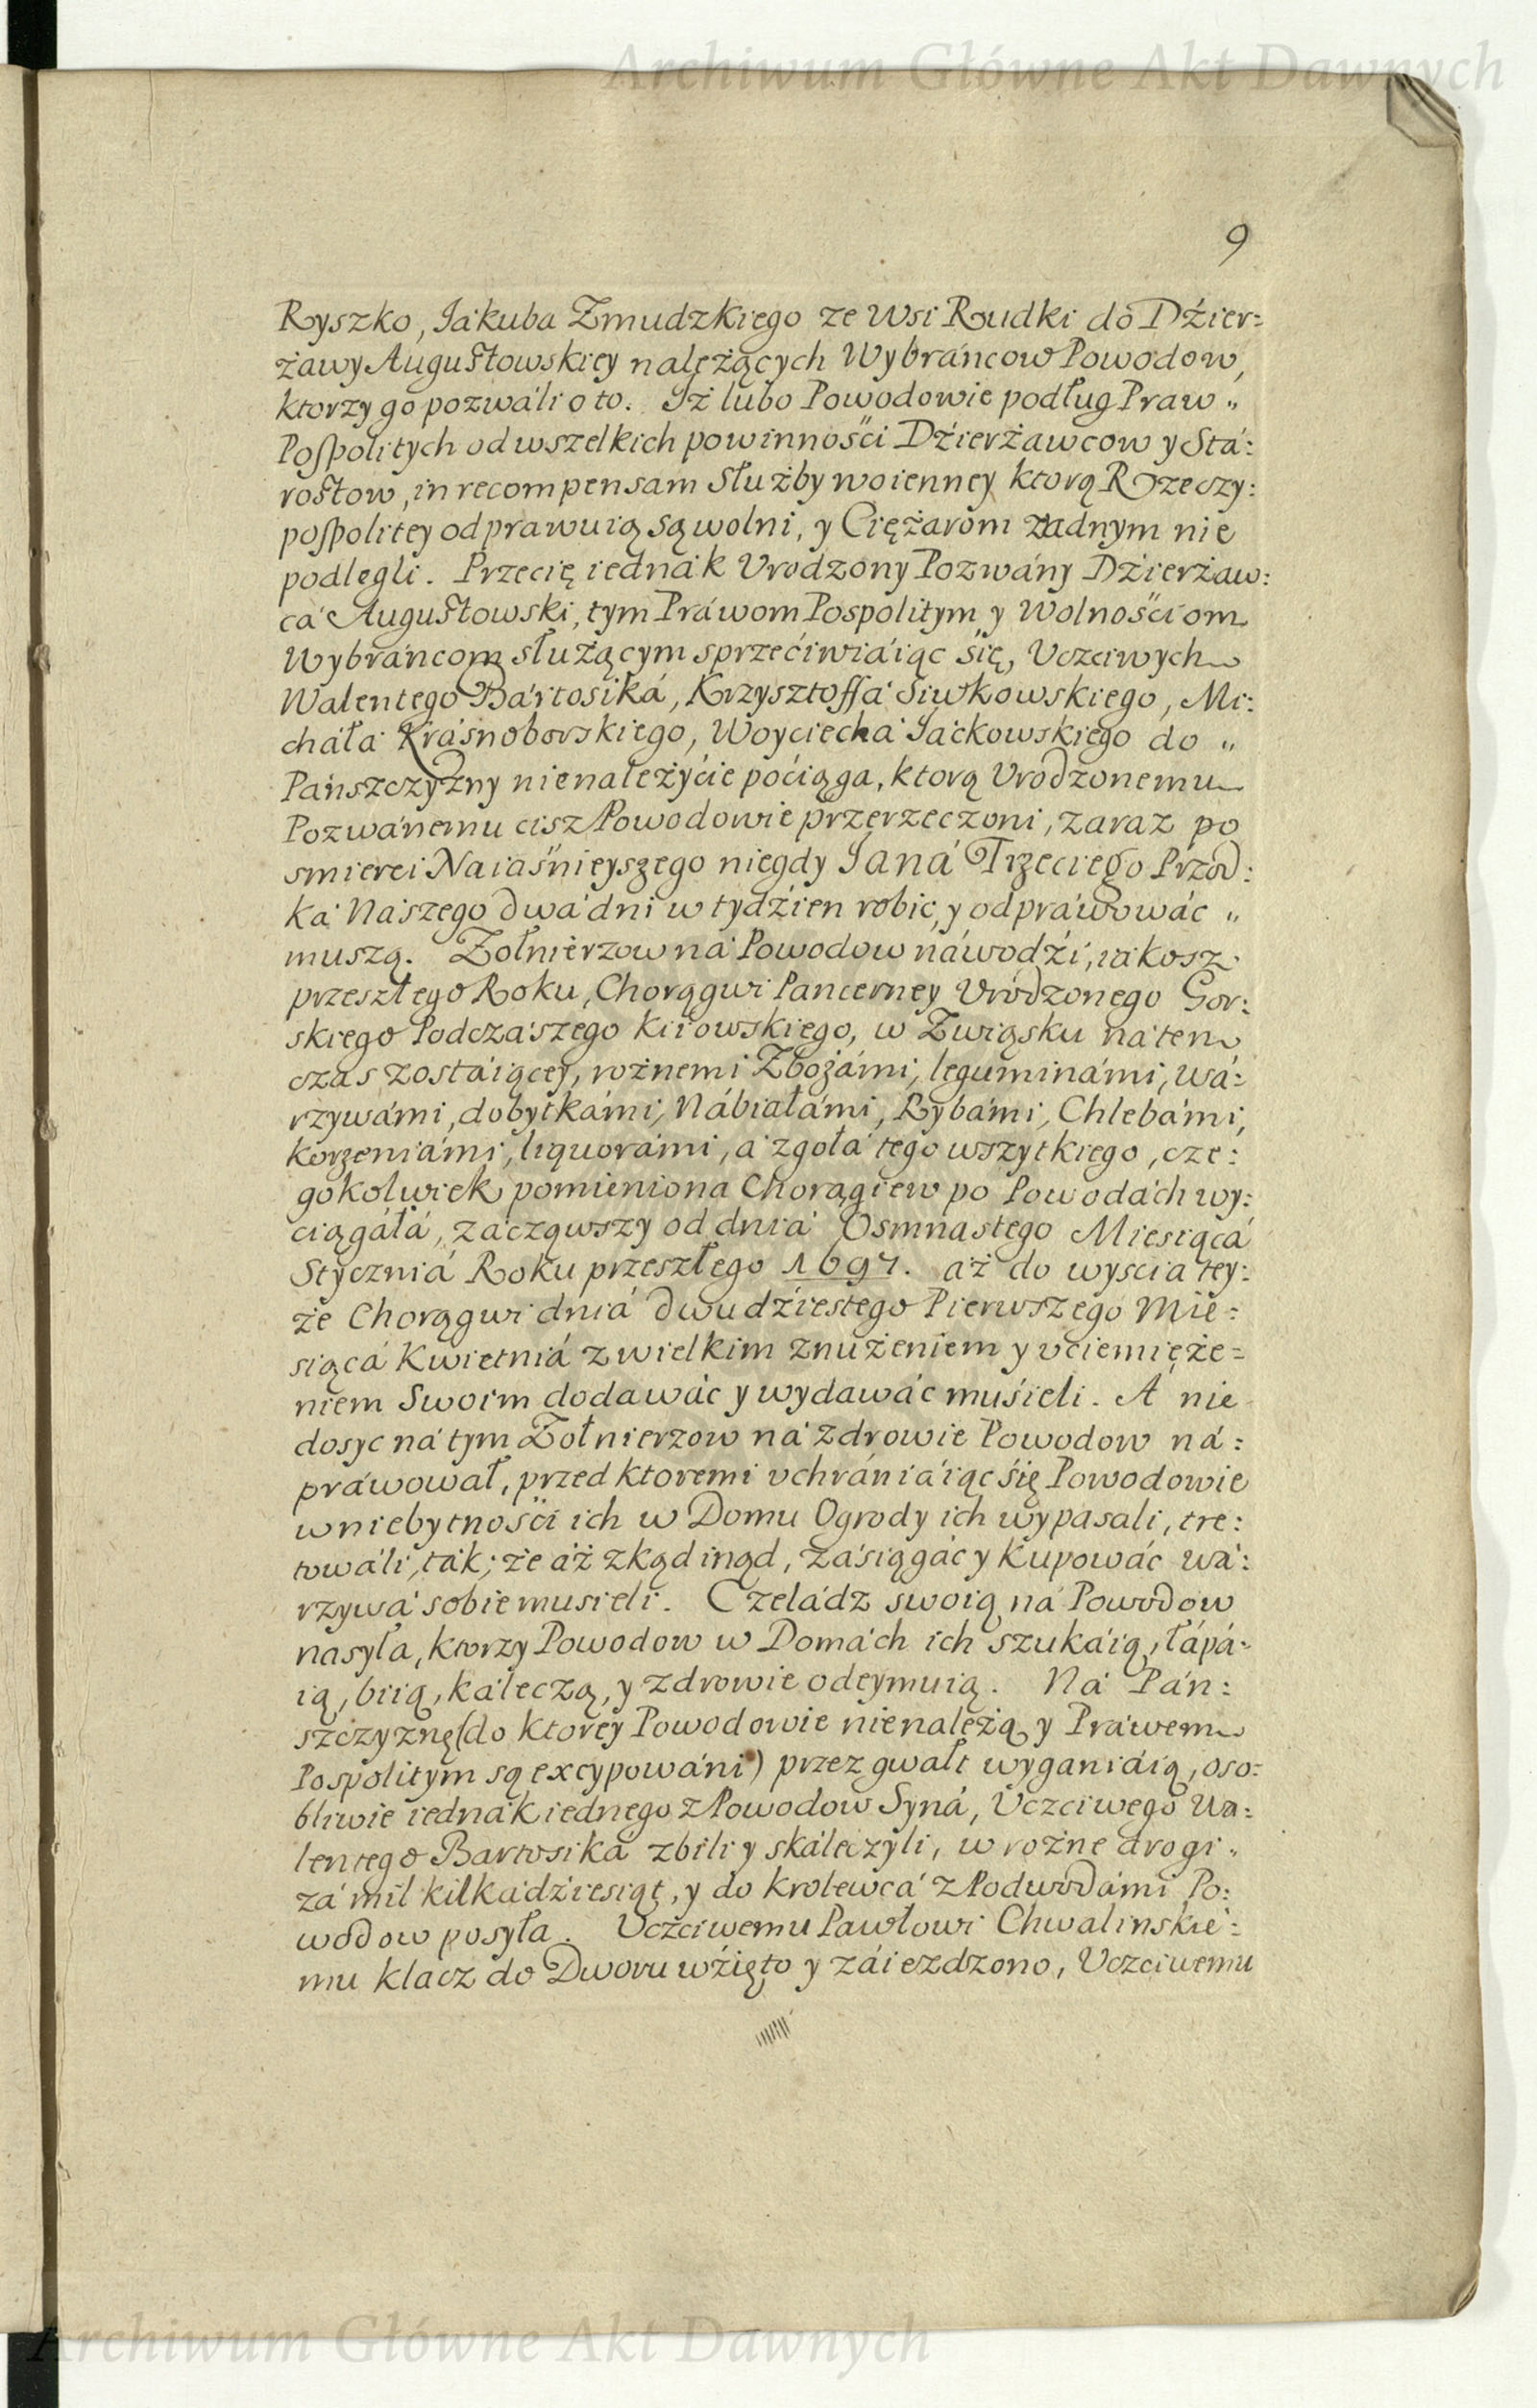 Archiwum Główne Akt Dawnych
9
Ryszko, Jákuba Zmudzkiego ze Wsi Rudki do Dźier=
żawy Augustowskiey należących Wybráncow Powodow,
ktorzy go pozwáli o to. Iż lubo Powodowie podług Praw „
Pospolitych od wszelkich powinnośći Dźierżawcow y Stá:
rostow, in recompensam Służby woienney ktorą Rzeczy:
pospolitey odprawuią są wolni, y Ciężarom żadnym nie
podlegli. Przecię iednák Vrodzony Pozwány Dźierżaw:
cá Augustowski, tym Práwom Pospolitym y Wolnośćiom
Wybráncom służącym sprzećiwiáiąc się, Vczciwych
Walentego Bártosiká, Krzysztoffá Siwkowskiego, Mi:
chałá Krásnoborskiego, Woyciechá Jáckowskiego do „
Páńszczyżny nienależyćie poćiąga, ktorą Vrodzonemu
Pozwánemu cisz Powodowie przerzeczoni, zaraz po
smierci Naiaśnieyszego niegdy Janá Trzeciego Przod:
ká Nászego dwá dni w tydźien robic, y odpráwowáć „
muszą. Żołnierzow ná Powodow náwodźi, iákosz
przeszłego Roku, Chorągwi Pancerney Vrodzonego Gor:
skiego Podczászego Kiiowskiego, w Związku ná ten
czas zostáiącey, rożnemi Zbożámi, leguminámi, wá:
rzywámi, dobytkámi, Nábiałámi, Rybámi, Chlebámi,
korzeniámi, liquorámi, á zgołá tego wszytkiego, cze:
gokolwiek pomieniona Chorągiew po Powodách wy:
ciągáłá, zácząwszy od dniá Osmnastego Miesiącá
Styczniá Roku przeszłego 1697. áż do wyscia tey:
że Chorągwi dniá dwudźiestego Pierwszego Mie:
siącá Kwietniá z wielkim znużeniem y vciemięże=
niem Swoim dodawáć y wydawáć muśieli. A nie
dosyc ná tym Żołnierzow ná zdrowie Powodow ná:
práwował, przed ktoremi vchrániáiąc się Powodowie
w niebytnośći ich w Domu Ogrody ich wypasali, tre:
towáli, ták; że áż zkąd inąd, zásiągáć y kupowáć wá:
rzywá sobie musieli. Czeládz swoią ná Powodow
nasyła, ktorzy Powodow w Domách ich szukáią, łápá:
ią, biią, káleczą, y zdrowie odeymuią. Ná Pán:
szczyznę (do ktorey Powodowie nienależą y Práwem
Pospolitym są excypowáni) przez gwałt wyganiáią, oso:
bliwie iednák iednego z Powodow Syná, Vczciwego Wa:
lentego Bartosiká zbili y skáleczyli, w rożne drogi „
zá mil kilkádźiesiąt, y do Krolewcá z Podwodámi Po:
wodow posyła. Vczciwemu Páwłowi Chwalinskie:
mu klacz do Dworu wźięto y záiezdzono, Vczciwemu
Archiwum Główne Akt Dawnych